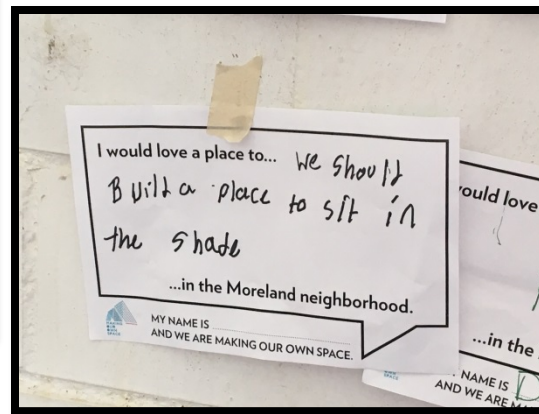 I would love a place to... we should
Build a place to sit in
the shade
...in the Moreland neighborhood.
MY NAME IS
AND WE ARE MAKING OUR OWN SPACE.
ould love
...in the
NAME IS D
AND WE ARE